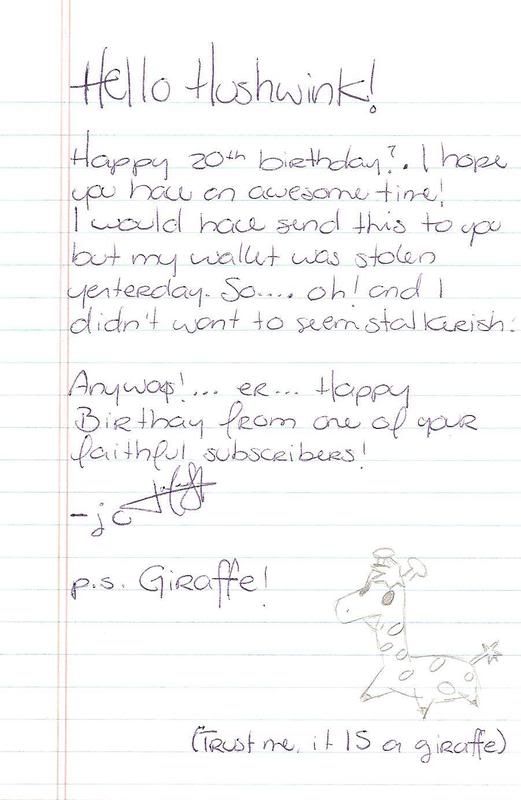 Hello Hushwink!
Happy 20th birthday?. I hope
you have an awesome time!
I would have send this to you
but my wallet was stolen
yesterday. So.... oh! and I
didn't want to seem stalkerish.
Anyways!... er... Happy
Birthay from one of your
faithful subscribers!
-jo
p.s. Giraffe!
(Trust me, it IS a giraffe)